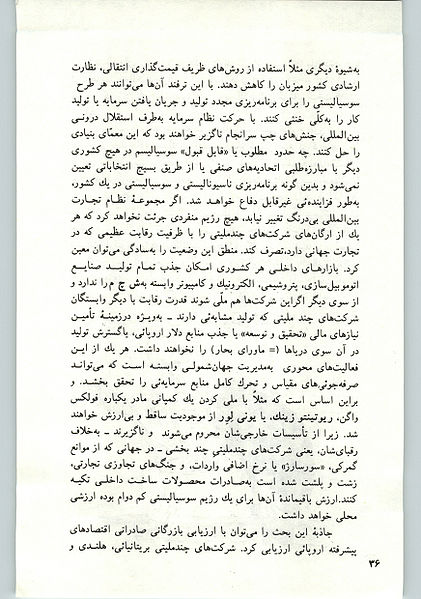 به‌شیوهٔ دیگری مثلاً استفاده از روش‌های ظریف قیمت‌گذاری انتقالی، نظارت
ارشادی کشور میزبان را کاهش دهند. با این ترفند آن‌ها می‌توانند هر طرح
سوسیالیستی را برای برنامه‌ریزی مجدد تولید و جریان یافتن سرمایه یا تولید
کار را به‌کلّی خنثی کنند. با حرکت نظام سرمایه به‌طرف استقلال درونی
بین‌المللی، جنش‌های چپ سرانجام ناگزیر خواهند بود که این معمّای بنیادی
را حل کنند. چه حدود مطلوب یا «قابل قبول» سوسیالیسم در هیچ کشوری
دیگر با مبارزه‌طلبی اتحادیه‌های صنفی یا از طریق بسیج انتخاباتی تعیین
نمی‌شود و بدین گونه برنامه‌ریزی ناسیونالیستی و سوسیالیستی در یك کشور،
به‌طور فزاینده‌ئی غیرقابل دفاع خواهد شد. اگر مجموعهٔ نظام تجارت
بین‌المللی بی‌درنگ تغییر نیابد، هیچ رژیم منفردی جرئت نخواهد کرد که هر
یك از ارگان‌های شرکت‌های چندملیتی را با ظرفیت رقابت عظیمی که در
تجارت جهانی دارد، تصرف کند. منطق این وضعیت را به‌سادگی می‌توان معین
کرد. بازارهای داخلی هر کشوری امکان جذب تمام تولید صنایع
اتوموبیل‌سازی، پتروشیمی، الکترونیك و کامپیوتر وابسته به‌ش چ م را ندارد و
از سوی دیگر اگراین شرکت‌ها هم ملّی شوند قدرت رقابت با دیگر وابستگان
شرکت‌های چند ملیتی که تولید مشابه‌ئی دارند ـ به‌ویژه درزمینهٔ تأمین
نیازهای مالی «تحقیق و توسعه» یا جذب منابع دلار اروپائی، یاگسترش تولید
در آن سوی دریاها (= ماورای بحار) را نخواهند داشت. هر یك از این
فعالیت‌های محوری به‌مدیریت جهان‌شمولی وابسته است که می‌تواند
صرفه‌جوئی‌های مقیاس و تحرك کامل منابع سرمایه‌ئی را تحقق بخشد. و
براین اساس است که مثلاً با ملی کردن یك کمپانی مادر یکباره فولکس
واگن، ریوتینتو زینك، یا یونی لِور از موجودیت ساقط و بی‌ارزش خواهند
شد. زیرا از تأسیسات خارجی‌شان محروم می‌شوند و ناگزیرند ـ به‌خلاف
رقبای‌شان، یعنی شرکت‌های چندملیتی چند بخشی ـ در جهانی که از موانع
گمرکی، «سورسارژ» یا نرخ اضافی واردات، و جنگ‌های تجاوزی تجارتی،
زشت و پلشت شده است به‌صادرات محصولات ساخت داخلی تکیه
کنند. ارزش باقیماندهٔ آن‌ها برای یك رژیم سوسیالیستی کم دوام بوده ارزشی
محلی خواهد داشت.
جاذبهٔ این بحث را می‌توان با ارزیابی بازرگانی صادراتی اقتصادهای
پیشرفته اروپائی ارزیابی کرد. شرکت‌های چندملیتی بریتانیائی، هلندی و
۳۶